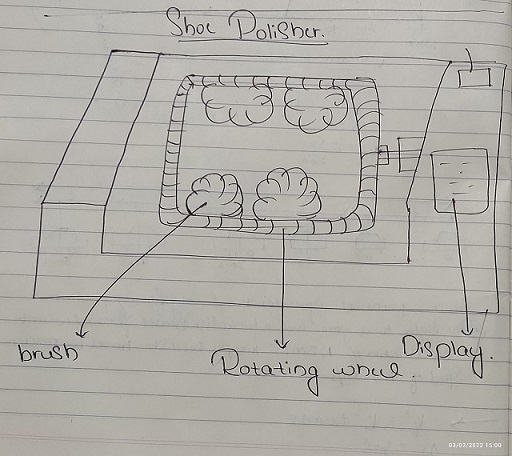 Shoe Polisher.
brush
Rotating wheel.
Display.
03/02/2022 15:00